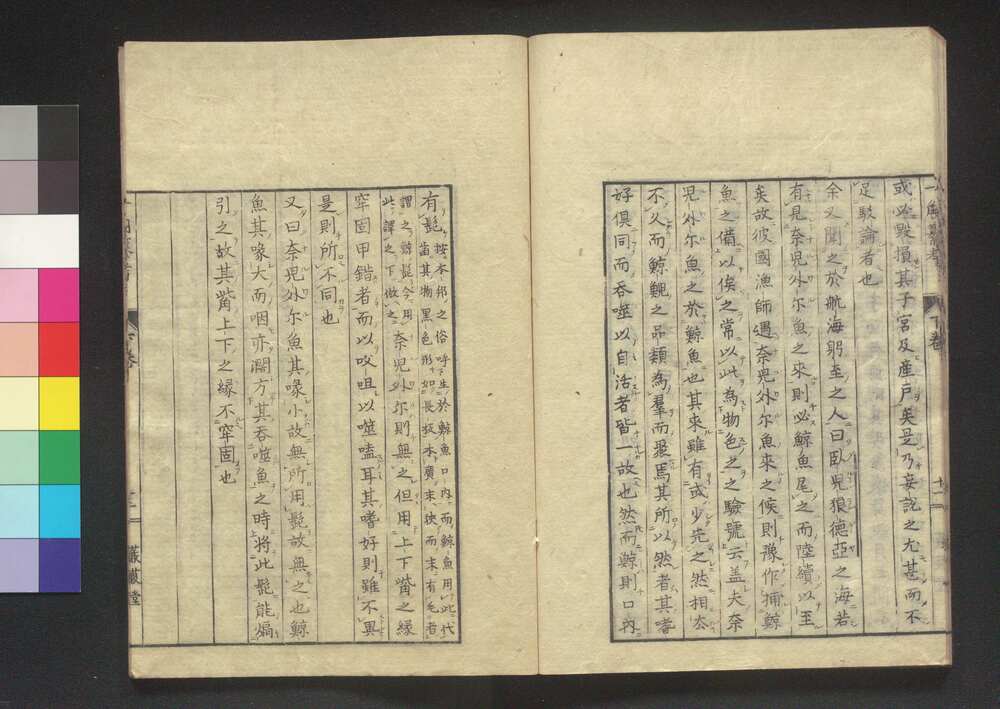 或必毀損其子宮及産戸矣是乃妄説之尤甚而不
足駁論者也
余又聞之於航海躬至之人曰臥兒狼德亞之海若
有見奈児外尓魚之來則必鯨魚尾之而陸續以至
矣故彼國漁師遇奈児外尓魚來之候則豫作捕鯨
魚之備以俟之常以此為物色之之驗號云盖夫奈
児外尓魚之於鯨魚也其來雖有或少先之然相去
不久而鯨鯢之品類為羣而聚焉其所以然者其嗜
好俱同而呑噬以自活者皆一故也然而鯨則口内
有髭
按本邦之俗呼生於鯨魚口内而鯨魚用此代
齒其物黒色形如長板本廣末狹而末有毛者
謂之鯨髭今用
此譯之下倣之
奈児外尓則無之但用上下觜之縁
窂固甲錯者而以咬咀以噬嗑耳其嗜好則雖不異
是則所不同也
又曰奈児外尓魚其喙小故無所用髭故無之也鯨
魚其喙大而咽亦濶方其呑噬魚之時將此髭能煽
引之故其觜上下之縁不窂固也
下卷
十二